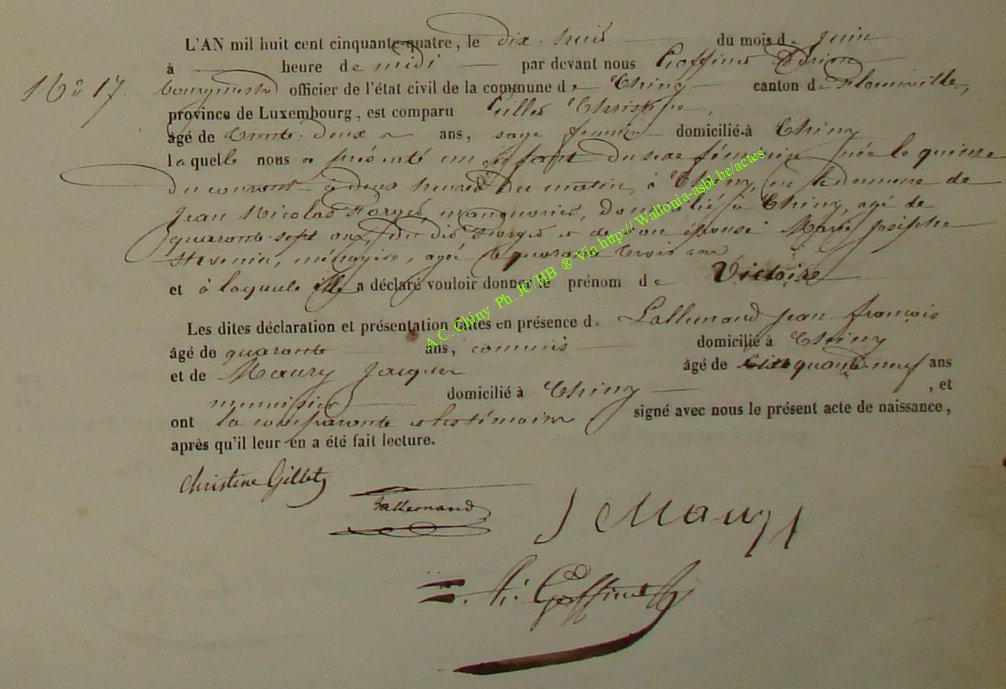 L'AN mil huit cent cinquante-quatre, le dix huit du mois de Juin
à heure de midi par devant nous Goffinet
N° 17. bourgmestre officier de l'état civil de la commune de Chiny canton de Florenville,
province de Luxembourg, est comparu Gillet Christine
âgé de trente deux ans, sage femme domicilié à Chiny
laquelle nous a présenté un enfant du sexe féminin née le quinze
du courant à deux heures du matin, à Chiny, en la demeure de
Jean Nicolas Forget, domicilié à Chiny, agé de
quarante sept ans, du dit Forget et de son épouse Marie Josèphe
ménagère, agée de quarante trois ans
et à laquelle elle a déclaré vouloir donner le prénom de Victoire
Les dites déclaration et présentation faites en présence de Lallemand Jean françois
âgé de quarante ans, commis domicilié à Chiny
et de Maury Jacques âgé de quarante neuf ans
menuisier domicilié à Chiny , et
ont la comparante et les témoins signé avec nous le présent acte de naissance,
après qu'il leur en a été fait lecture.
Christine Gillet
Lallemand
J Maury
A. Goffinet
A.C. Chiny Ph. JC/HB ® via http://Wallonia-asbl.be/actes